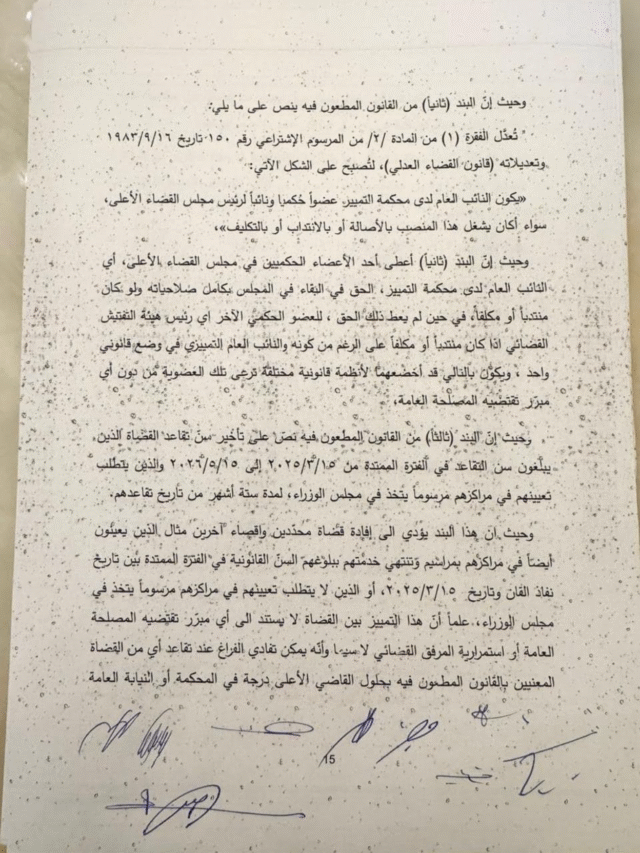 وحيث إنّ البند (ثانياً) من القانون المطعون فيه ينص على ما يلي:
" تُعدّل الفقرة (١) من المادة /٢/ من المرسوم الإشتراعي رقم ١٥٠ تاريخ ١٩٨٣/٩/١٦
وتعديلاته (قانون القضاء العدلي)، لتُصبح على الشكل الآتي:
«يكون النائب العام لدى محكمة التمييز عضواً حُكماً ونائباً لرئيس مجلس القضاء الأعلى،
سواء أكان يشغل هذا المنصب بالأصالة أو بالانتداب أو بالتكليف»،
وحيث إنّ البند (ثانياً) أعطى أحد الأعضاء الحكميين في مجلس القضاء الأعلى، أي
النائب العام لدى محكمة التمييز، الحق في البقاء في المجلس بكامل صلاحياته ولو كان
منتدباً أو مكلفاً، في حين لم يعط ذلك الحق ، للعضو الحكمي الآخر اي رئيس هيئة التفتيش
القضائي اذا كان منتدباً أو مكلفاً على الرغم من كونه والنائب العام التمييزي في وضع قانوني
واحد ، ويكون بالتالي قد أخضعهما لأنظمة قانونية مختلفة ترعى تلك العضوية من دون أي
مبرّر تقتضيه المصلحة العامة،
وحيث إنّ البند (ثالثاً) من القانون المطعون فيه نصّ على تأخير سنّ تقاعد القضاة الذين
يبلغون سن التقاعد في الفترة الممتدة من ٢٠٢٥/٣/١٥ إلى ٢٠٢٦/٥/١٥ والذين يتطلب
تعيينهم في مراكزهم مرسوماً يتخذ في مجلس الوزراء، لمدة ستة أشهر من تاريخ تقاعدهم.
وحيث ان هذا البند يؤدي الى إفادة قضاة محدّدين وإقصاء آخرين مثال الذين يعينون
أيضاً في مراكزهم بمراسيم وتنتهي خدمتهم ببلوغهم السنّ القانونية في الفترة الممتدة بين تاريخ
نفاذ القان وتاريخ ٢٠٢٥/٣/١٥، أو الذين لا يتطلب تعيينهم في مراكزهم مرسوماً يتخذ في
مجلس الوزراء، علماً أنّ هذا التمييز بين القضاة لا يستند الى أي مبرّر تقتضيه المصلحة
العامة أو استمرارية المرفق القضائي لا سيما وأنّه يمكن تفادي الفراغ عند تقاعد أي من القضاة
المعنيين بالقانون المطعون فيه بحلول القاضي الأعلى درجة في المحكمة أو النيابة العامة
15